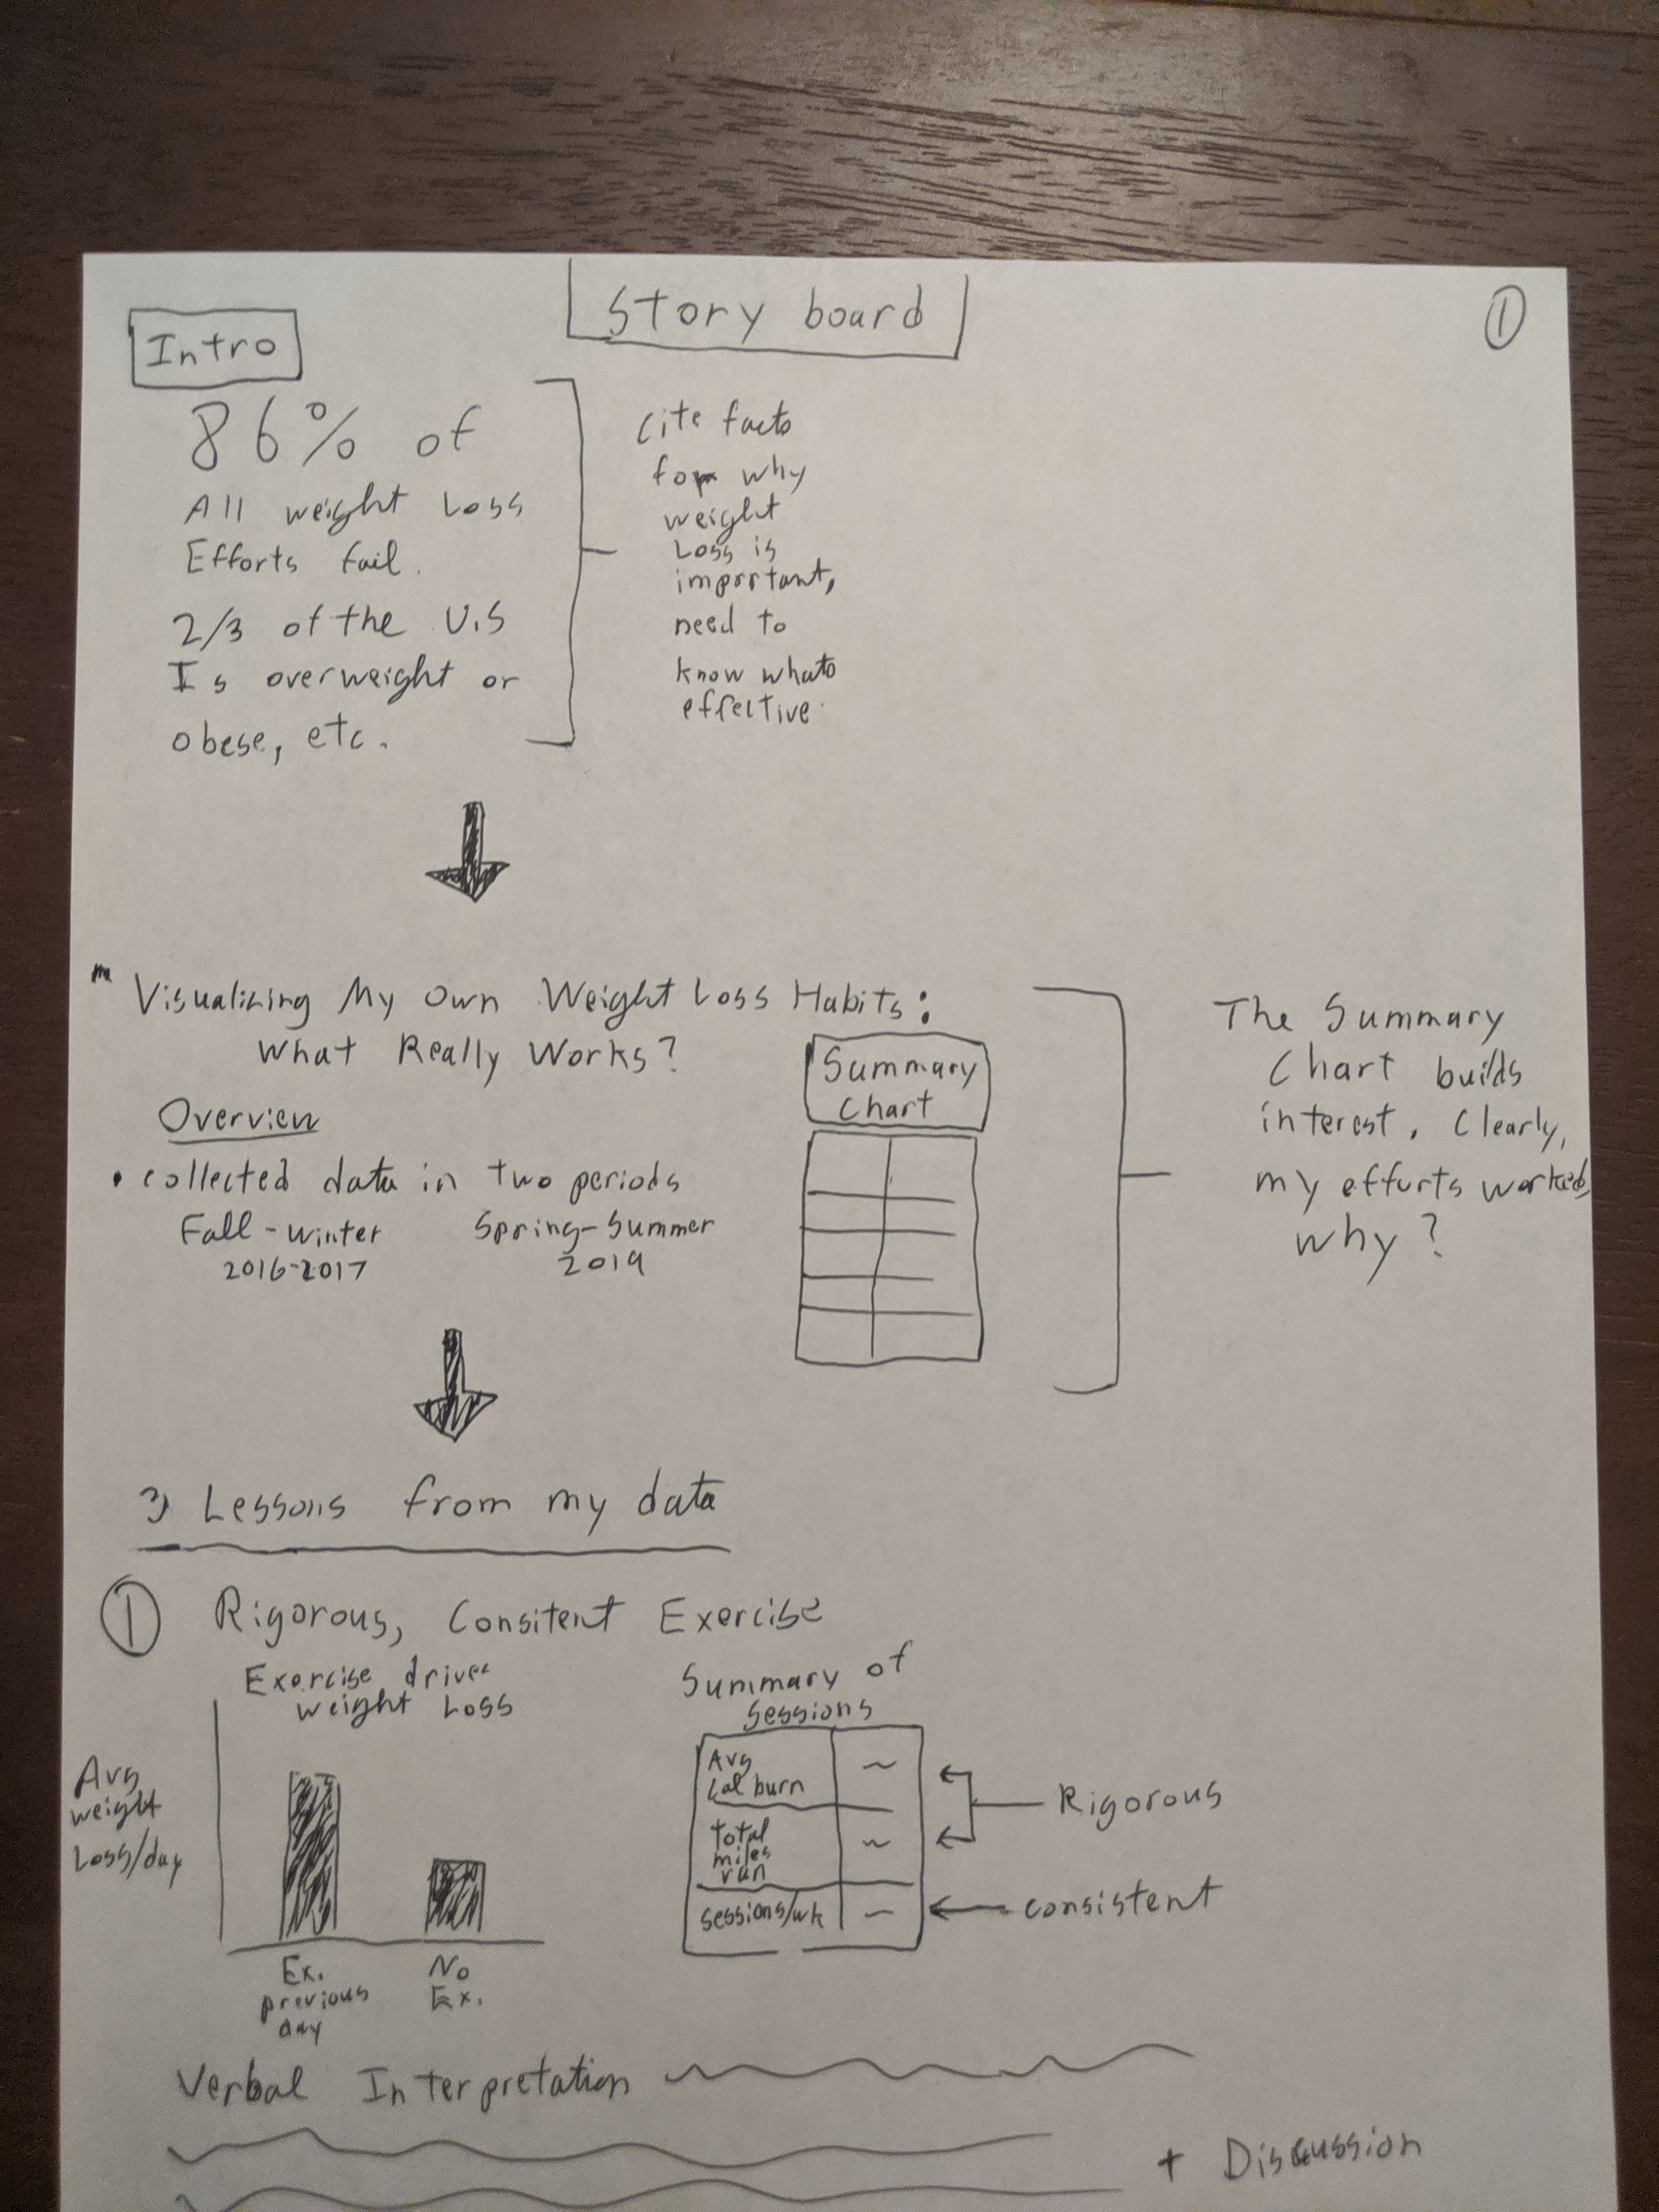 Story board
①
Intro
86% of
All weight Loss
Efforts fail.
2/3 of the U.S
Is overweight or
obese, etc.
Cite facts
for why
weight
Loss is
important,
need to
know whats
effective.
Visualizing My Own Weight Loss Habits:
What Really Works?
Summary
Chart
Overview
• collected data in two periods
Fall-winter
2016-2017
Spring-Summer
2019
The Summary
Chart builds
interest. Clearly,
my efforts worked,
why?
3 Lessons from my data
① Rigorous, Consitent Exercise
Exercise drives
weight Loss
Avg
weight
Loss/day
Ex.
previous
day
No
Ex.
Summary of
Sessions
Avg
Cal burn
~
total
miles
run
~
Sessions/wk
~
Rigorous
consistent
Verbal Interpretation
+ Discussion